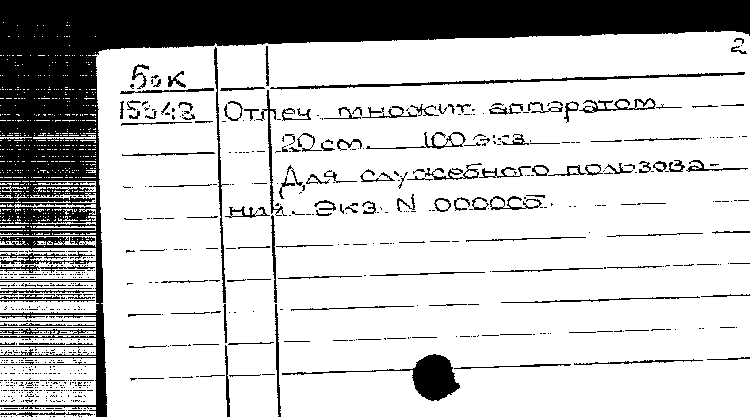 2
Бок
15348 Отпеч. множит. аппаратом.
20 см. 100 экз.
Для служебного пользова-
ния. Экз. N 000005.